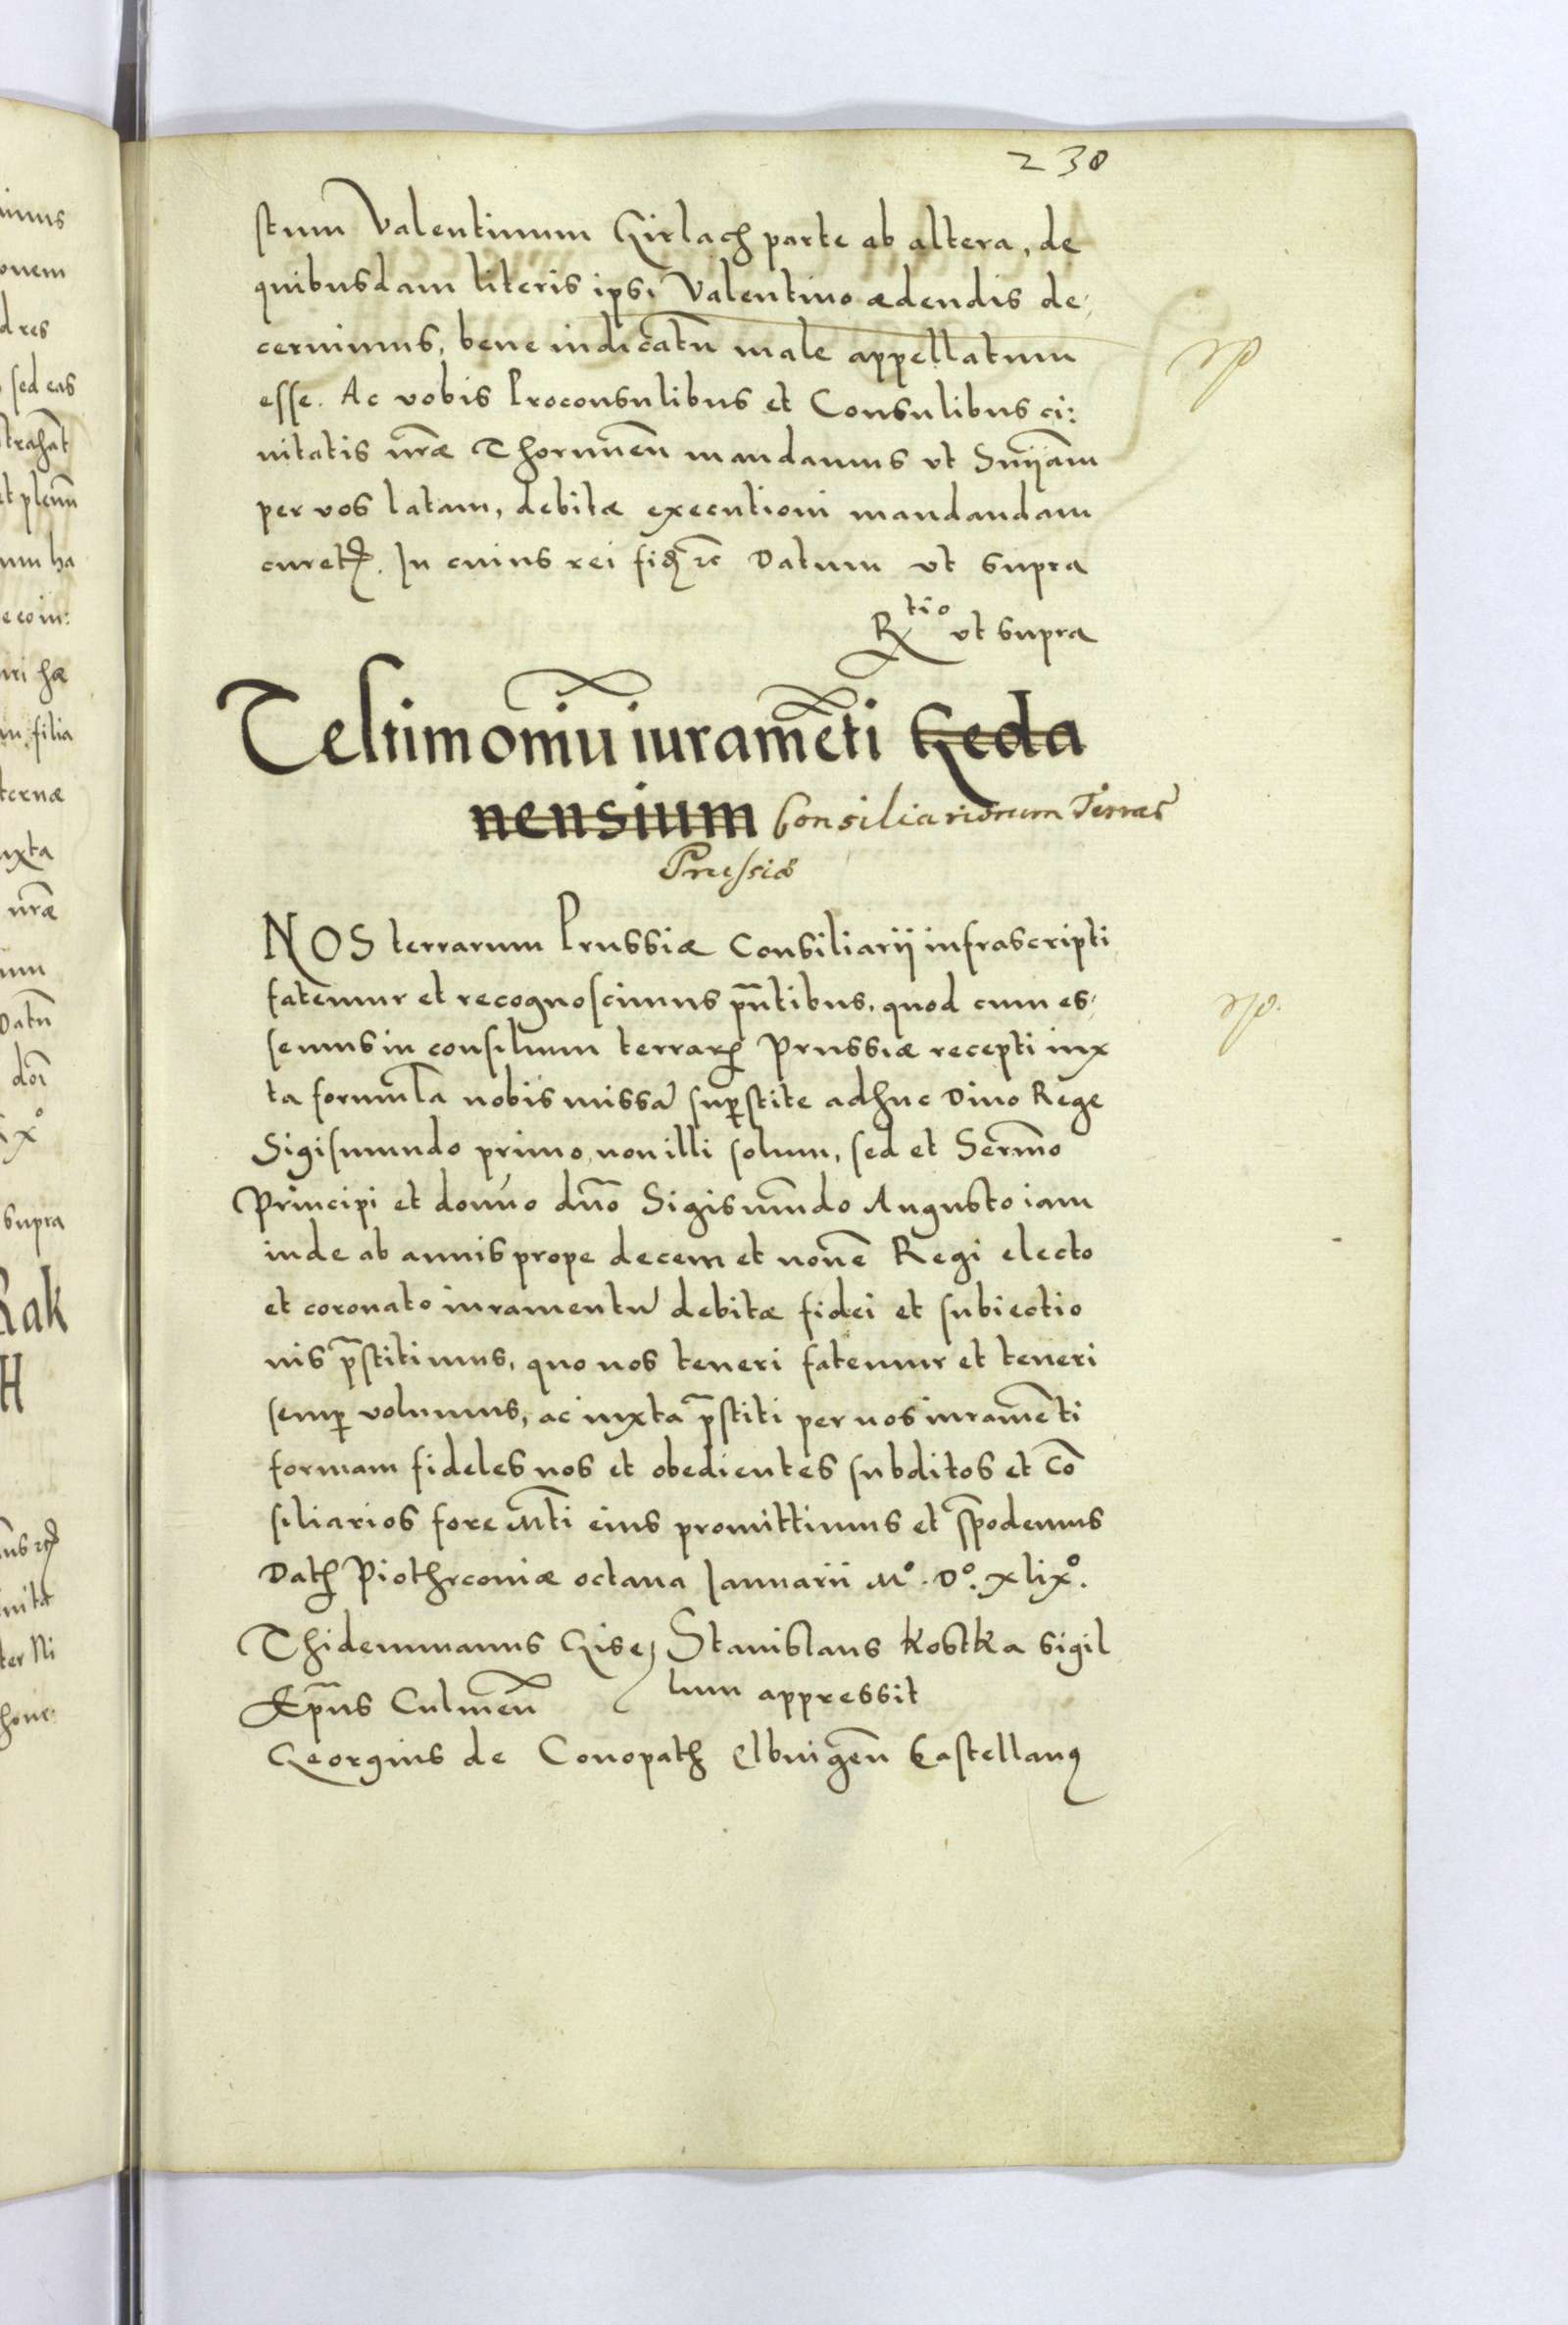 230
stum Valentinum Girlach parte ab altera, de
quibusdam literis ipsi Valentino ædendis de,
cernimus, bene iudicatū male appellatum
esse. Ac vobis Proconsulibus et Consulibus ci:
uitatis nr̃æ Thorunen̄ mandamus vt Sn̄iam
per vos latam, debitæ executioni mandandam
curetꝭ. In cuius rei fiđ ꝛc Datum vt supra
R tio vt supra
Testimoniū iuramēti Geda
nensium Consiliariorum Terraꝝ
Prussiæ
NOS terrarum Prussiæ Consiliarii infrascripti
fatemur et recognoscimus pn̄tibus, quod cum es,
semus in consilium terrarꝝ Prussiæ recepti iux
ta formulā nobis missā suꝑstite adhuc Diuo Rege
Sigismundo primo, non illi solum, sed et Sermō
Principi et domino dn̄o Sigismūndo Augusto iam
inde ab annis prope decem et nouē Regi electo
et coronato iuramentū debitæ fidei et subiectio
nis p̄stitimus, quo nos teneri fatemur et teneri
semꝑ volumus, ac iuxta p̄stiti per nos iuramēti
formam fideles nos et obedientes subditos et Cō
siliarios fore Mti eius promittimus et spōdemus
Datꝭ Piothrconiæ octaua Ianuarii M° . D°. xlix°.
Thidemmanus Gise Stanislaus Kostka sigil
Ep̄us Culmen̄ lum appressit
Georgius de Conopath Elbingen̄ Castellanꝰ